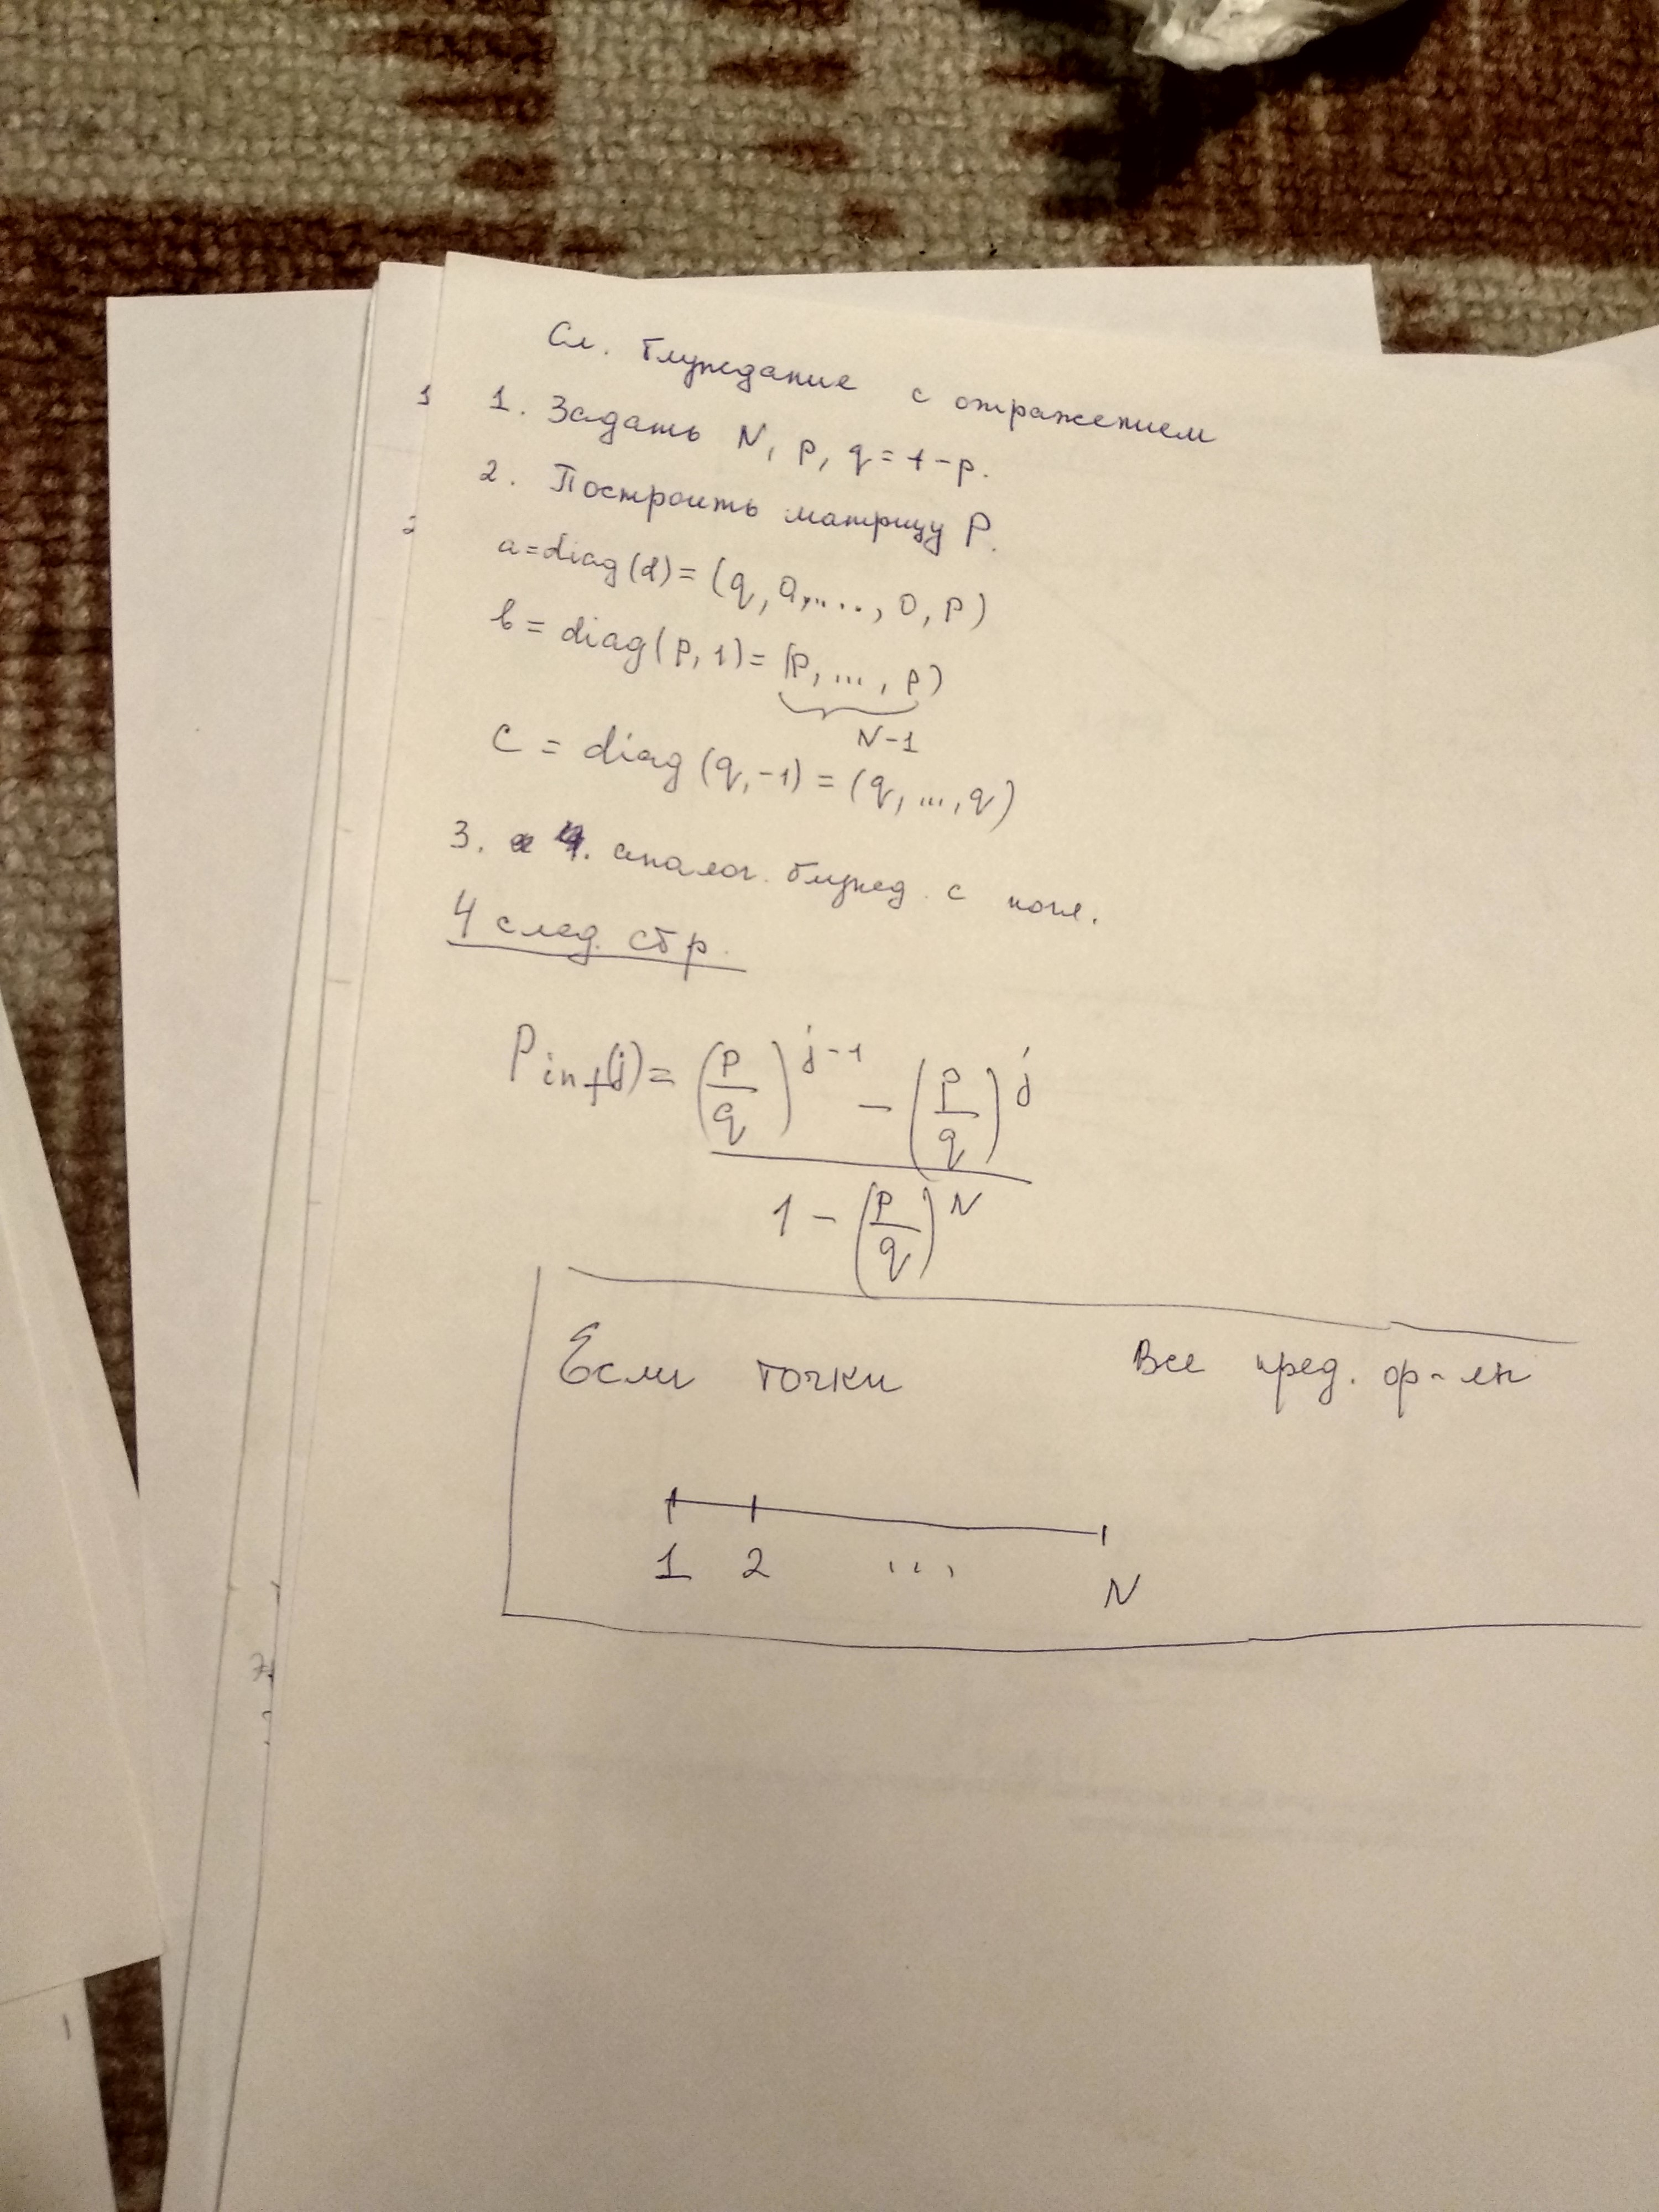 Сл. блуждание с отражением
1. Задать N, p, q = 1 - p.
2. Построить матрицу P.
a = diag(d) = (q, 0, ..., 0, p)
b = diag(p, 1) = (p, ..., p)
N-1
c = diag(q, -1) = (q, ..., q)
3. аналог. блужд. с погл.
4 след. стр.
P inf(j) = (p/q)^(j-1) - (p/q)^j
1 - (p/q)^N
Если точки Все пред. ф-лы
1 2 ... N